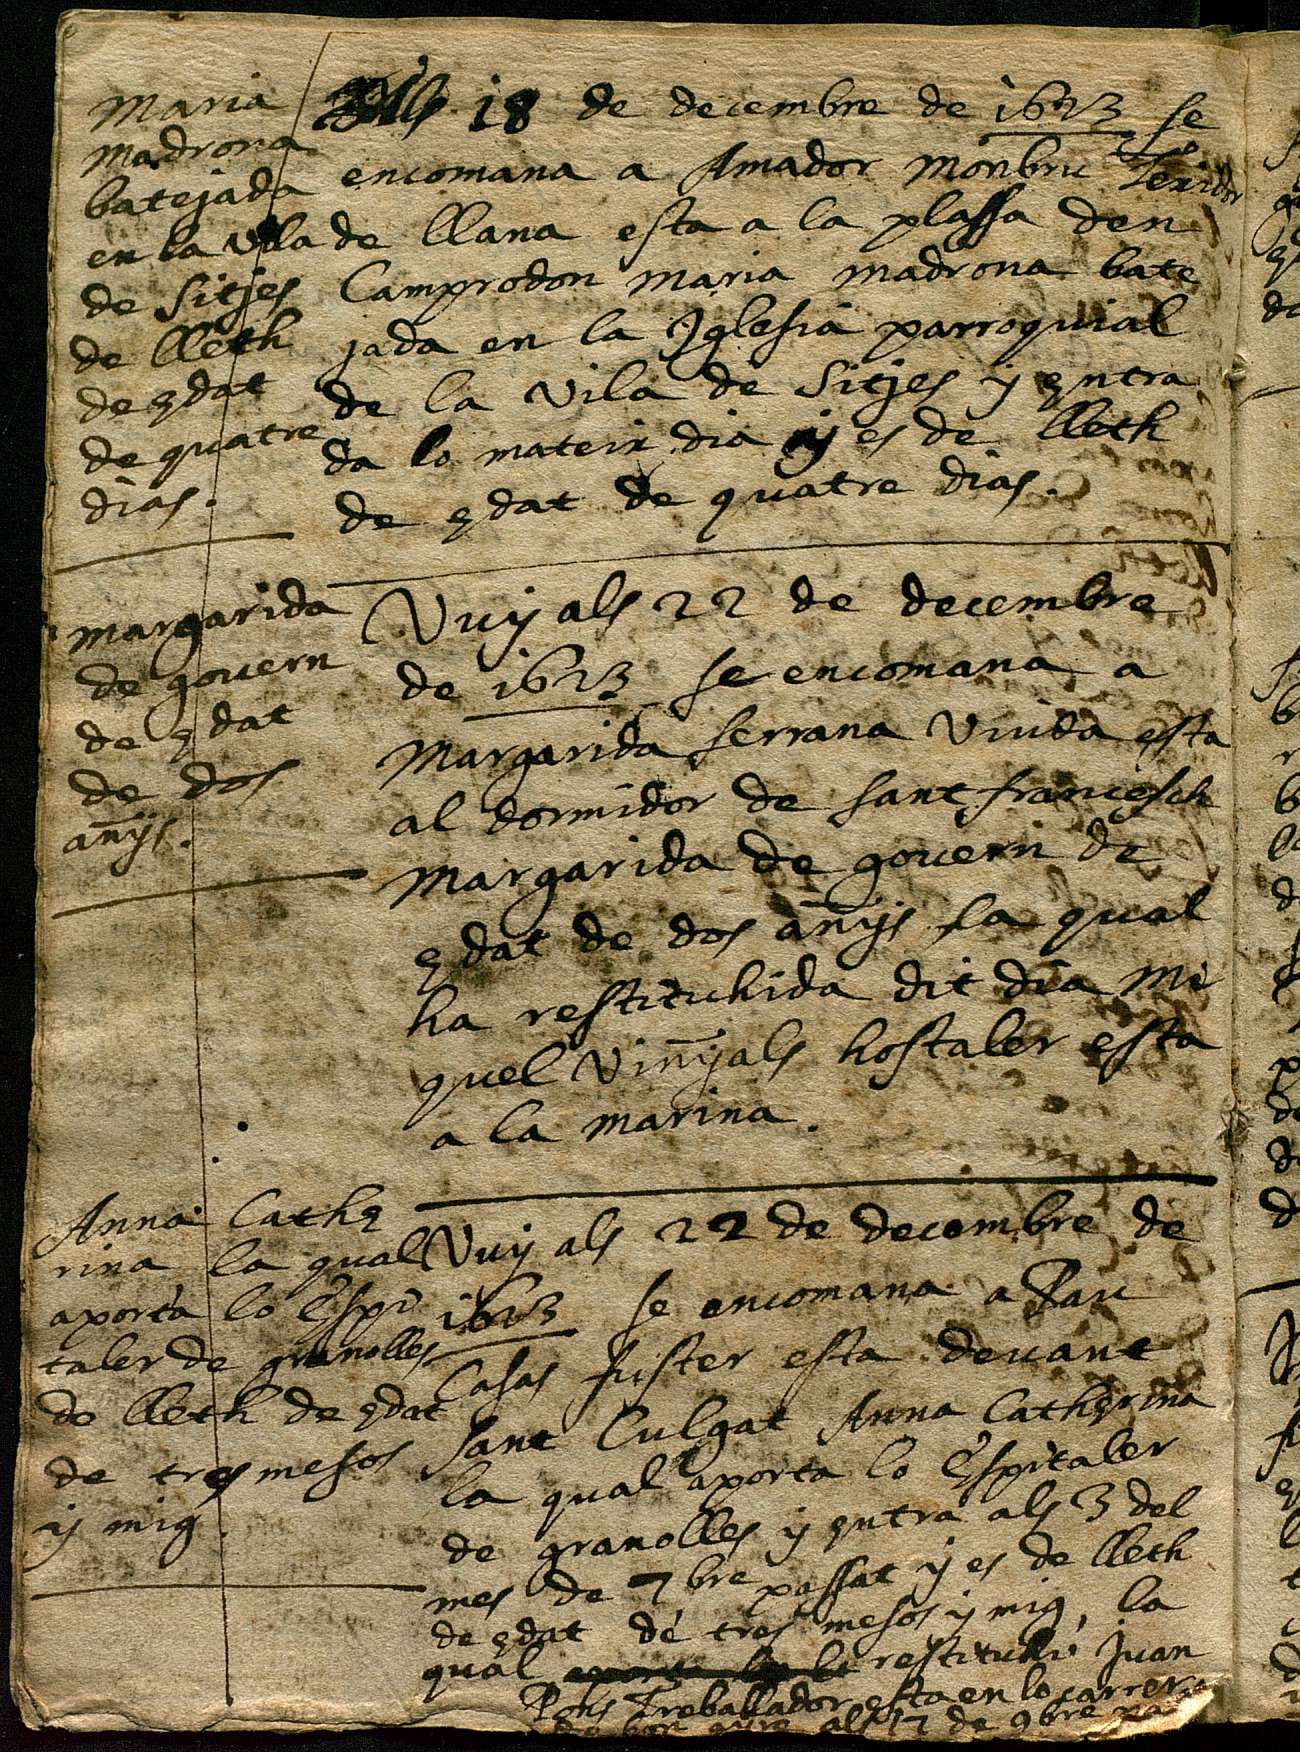 Maria
Madrona
batejada
en la vila
de Sitjes
de lleth
de edat
de quatre
dias.
Als 18 de decembre de 1623 se
encomana a Amador Monbru Texidor
de llana esta a la plassa den
Camprodon Maria Madrona bate
jada en la Iglesia parroquial
de la vila de Sitjes y entra
da lo mateix dia y es de lleth
de edat de quatre dias.
Margarida
de govern
de edat
de dos
añys.
Vuy als 22 de decembre
de 1623 se encomana a
Margarida Serrana Viuda esta
al dormidor de sant francesch
Margarida de govern de
edat de dos añys la qual
ha restituhida dit dia Mi
quel Viñyals hostaler esta
a la marina.
Anna Cathe
rina la qual
aporta lo Espi
taler de granolles
de lleth de edat
de tres mesos
y mig.
Vuy als 22 de decembre de
1623 se encomana a Pau
Casas fuster esta devant
Sant Culgat Anna Catherina
la qual aporta lo Espitaler
de granolles y entra als 3 del
mes de 7bre passat y es de lleth
de edat de tres mesos y mig, la
qual restituhi Juan
Pons Treballador esta en lo carrer
de bon ayre als 17 de 9bre